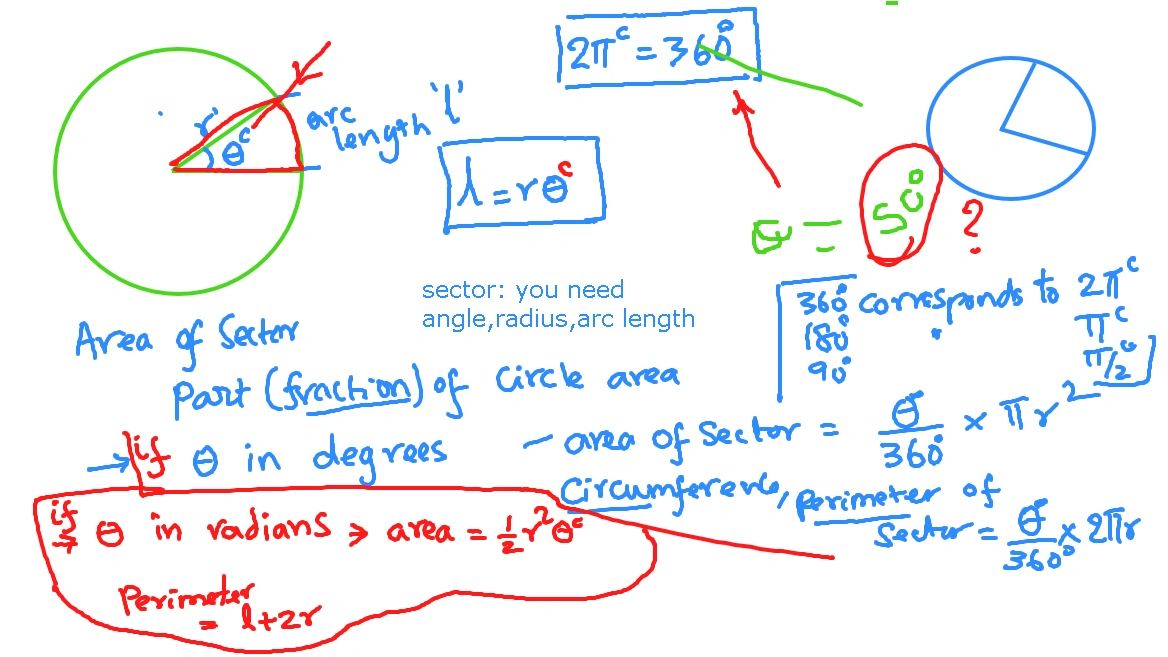 2π^c = 360°
r
θ^c
arc
length 'l'
l = rθ^c
θ = 50° ?
sector: you need
angle,radius,arc length
360° corresponds to 2π^c
180° π^c
90° π/2^c
Area of Sector
Part (fraction) of circle area
→ if θ in degrees – area of sector = θ°/360° × πr²
Circumference, perimeter of
sector = θ°/360° × 2πr
if θ in radians > area = 1/2 r²θ^c
Perimeter
= l+2r